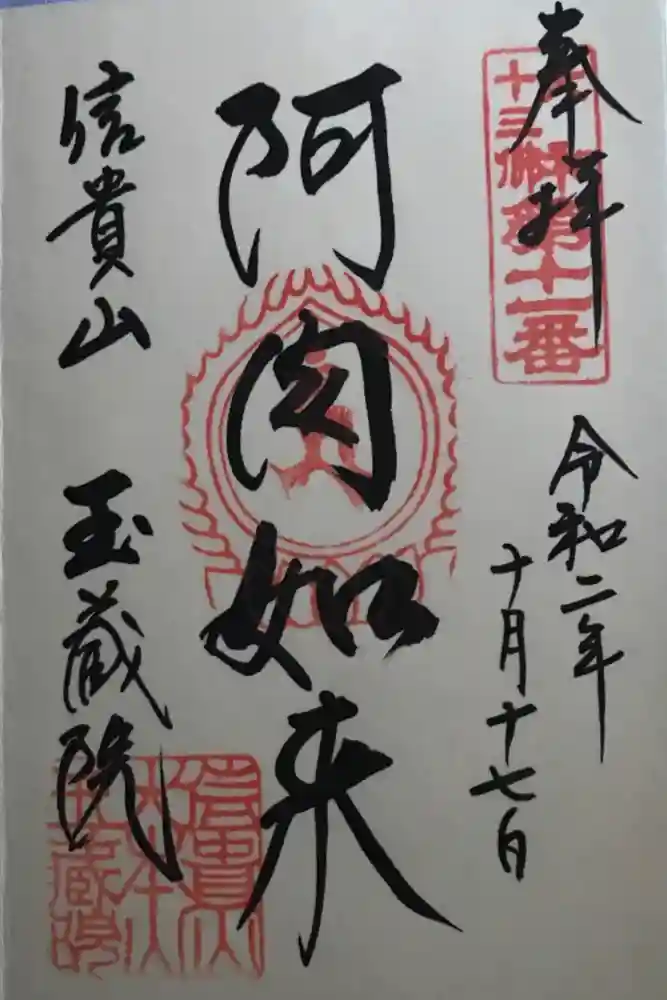 奉拝
十三佛
第十一番
令和二年
十月十七日
阿閦如来
信貴山 玉蔵院
信貴山
大本山
玉蔵院